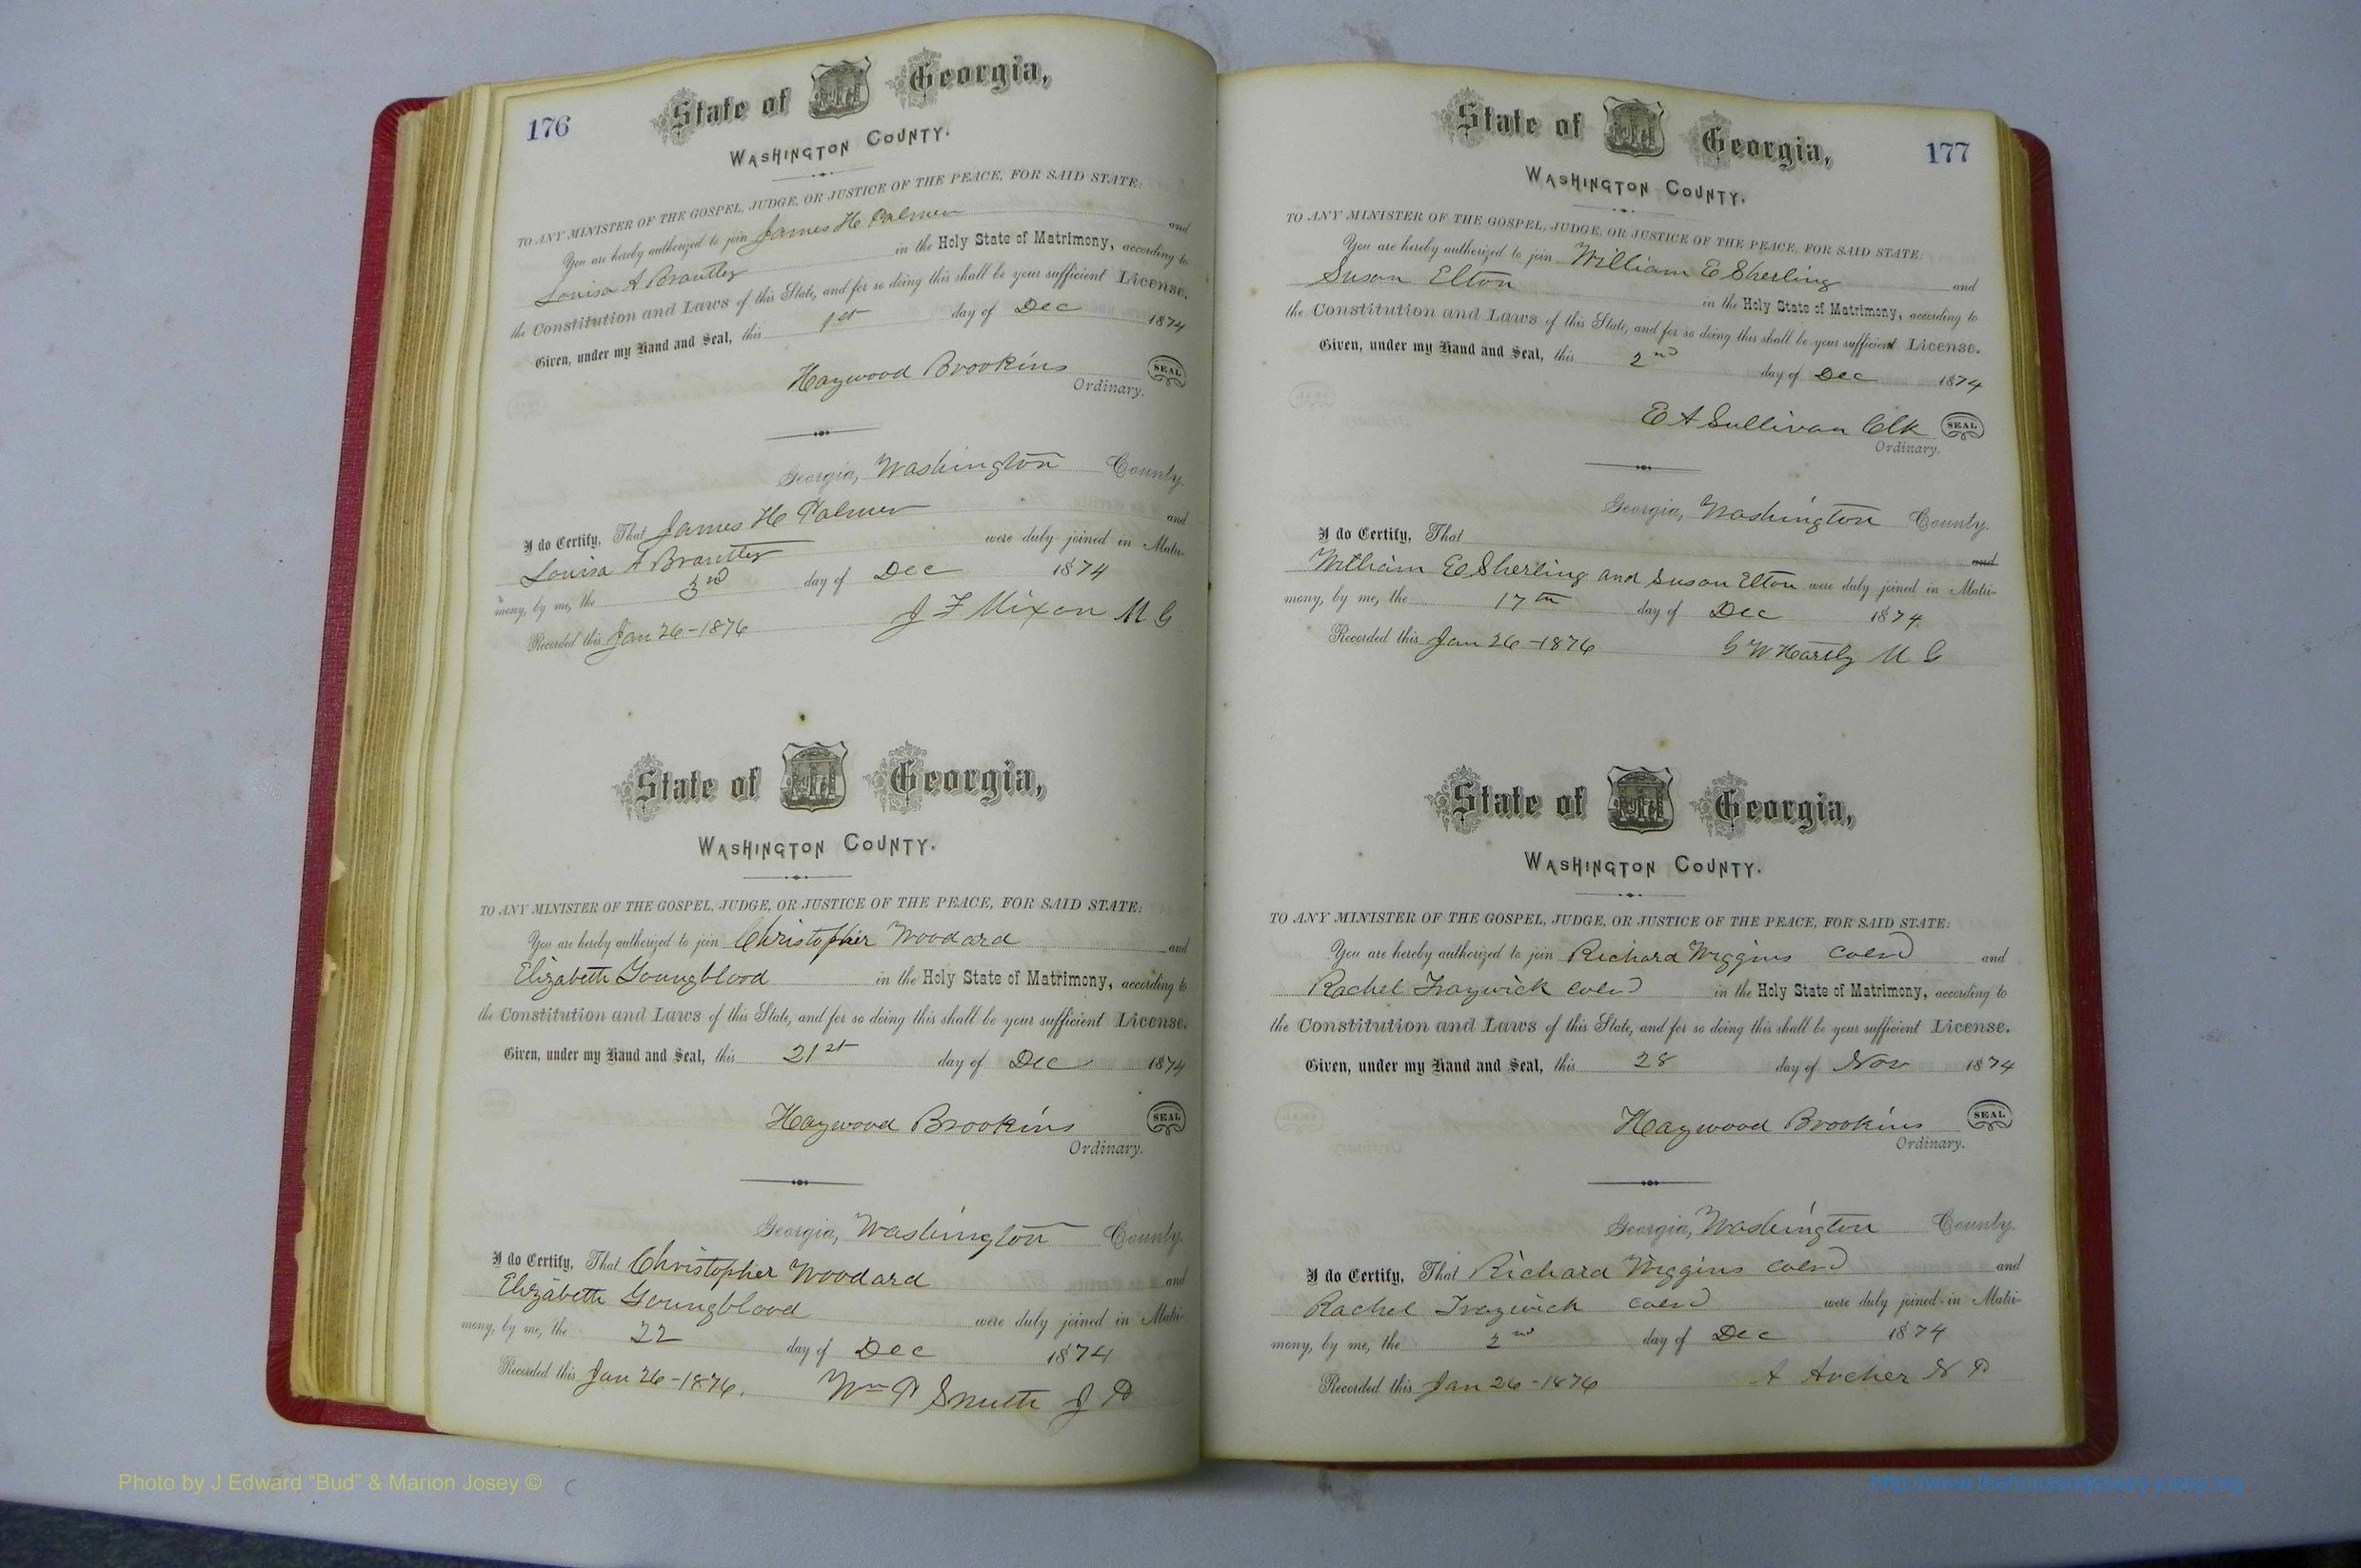 176
State of Georgia,
WASHINGTON COUNTY.
TO ANY MINISTER OF THE GOSPEL, JUDGE, OR JUSTICE OF THE PEACE, FOR SAID STATE:
You are hereby authorized to join James H Palmer and
Louisa A Brantley in the Holy State of Matrimony, according to
the Constitution and Laws of this State, and for so doing this shall be your sufficient License.
Given, under my Hand and Seal, this 1st day of Dec 1874
Haywood Brookins SEAL
Ordinary.
Georgia, Washington County.
I do Certify, That James H Palmer and
Louisa A Brantley were duly joined in Matri-
mony, by me, the 3rd day of Dec 1874
Recorded this Jan 26-1876 J F Mixon M G
State of Georgia,
WASHINGTON COUNTY.
TO ANY MINISTER OF THE GOSPEL, JUDGE, OR JUSTICE OF THE PEACE, FOR SAID STATE:
You are hereby authorized to join Christopher Woodard and
Elizabeth Youngblood in the Holy State of Matrimony, according to
the Constitution and Laws of this State, and for so doing this shall be your sufficient License.
Given, under my Hand and Seal, this 21st day of Dec 1874
Haywood Brookins SEAL
Ordinary.
Georgia, Washington County.
I do Certify, That Christopher Woodard and
Elizabeth Youngblood were duly joined in Matri-
mony, by me, the 22 day of Dec 1874
Recorded this Jan 26-1876. Wm P Smith J P
177
State of Georgia,
WASHINGTON COUNTY.
TO ANY MINISTER OF THE GOSPEL, JUDGE, OR JUSTICE OF THE PEACE, FOR SAID STATE:
You are hereby authorized to join William E Sherling and
Susan Elton in the Holy State of Matrimony, according to
the Constitution and Laws of this State, and for so doing this shall be your sufficient License.
Given, under my Hand and Seal, this 2nd day of Dec 1874
E A Sullivan Clk SEAL
Ordinary.
Georgia, Washington County.
I do Certify, That and
William E Sherling and Susan Elton were duly joined in Matri-
mony, by me, the 17th day of Dec 1874
Recorded this Jan 26-1876 G W Hartly M G
State of Georgia,
WASHINGTON COUNTY.
TO ANY MINISTER OF THE GOSPEL, JUDGE, OR JUSTICE OF THE PEACE, FOR SAID STATE:
You are hereby authorized to join Richard Wiggins cold and
Rachel Trawick cold in the Holy State of Matrimony, according to
the Constitution and Laws of this State, and for so doing this shall be your sufficient License.
Given, under my Hand and Seal, this 28 day of Nov 1874
Haywood Brookins SEAL
Ordinary.
Georgia, Washington County.
I do Certify, That Richard Wiggins cold and
Rachel Trawick cold were duly joined in Matri-
mony, by me, the 2nd day of Dec 1874
Recorded this Jan 26-1876 A Archer N P
Photo by J Edward "Bud" & Marion Josey ©